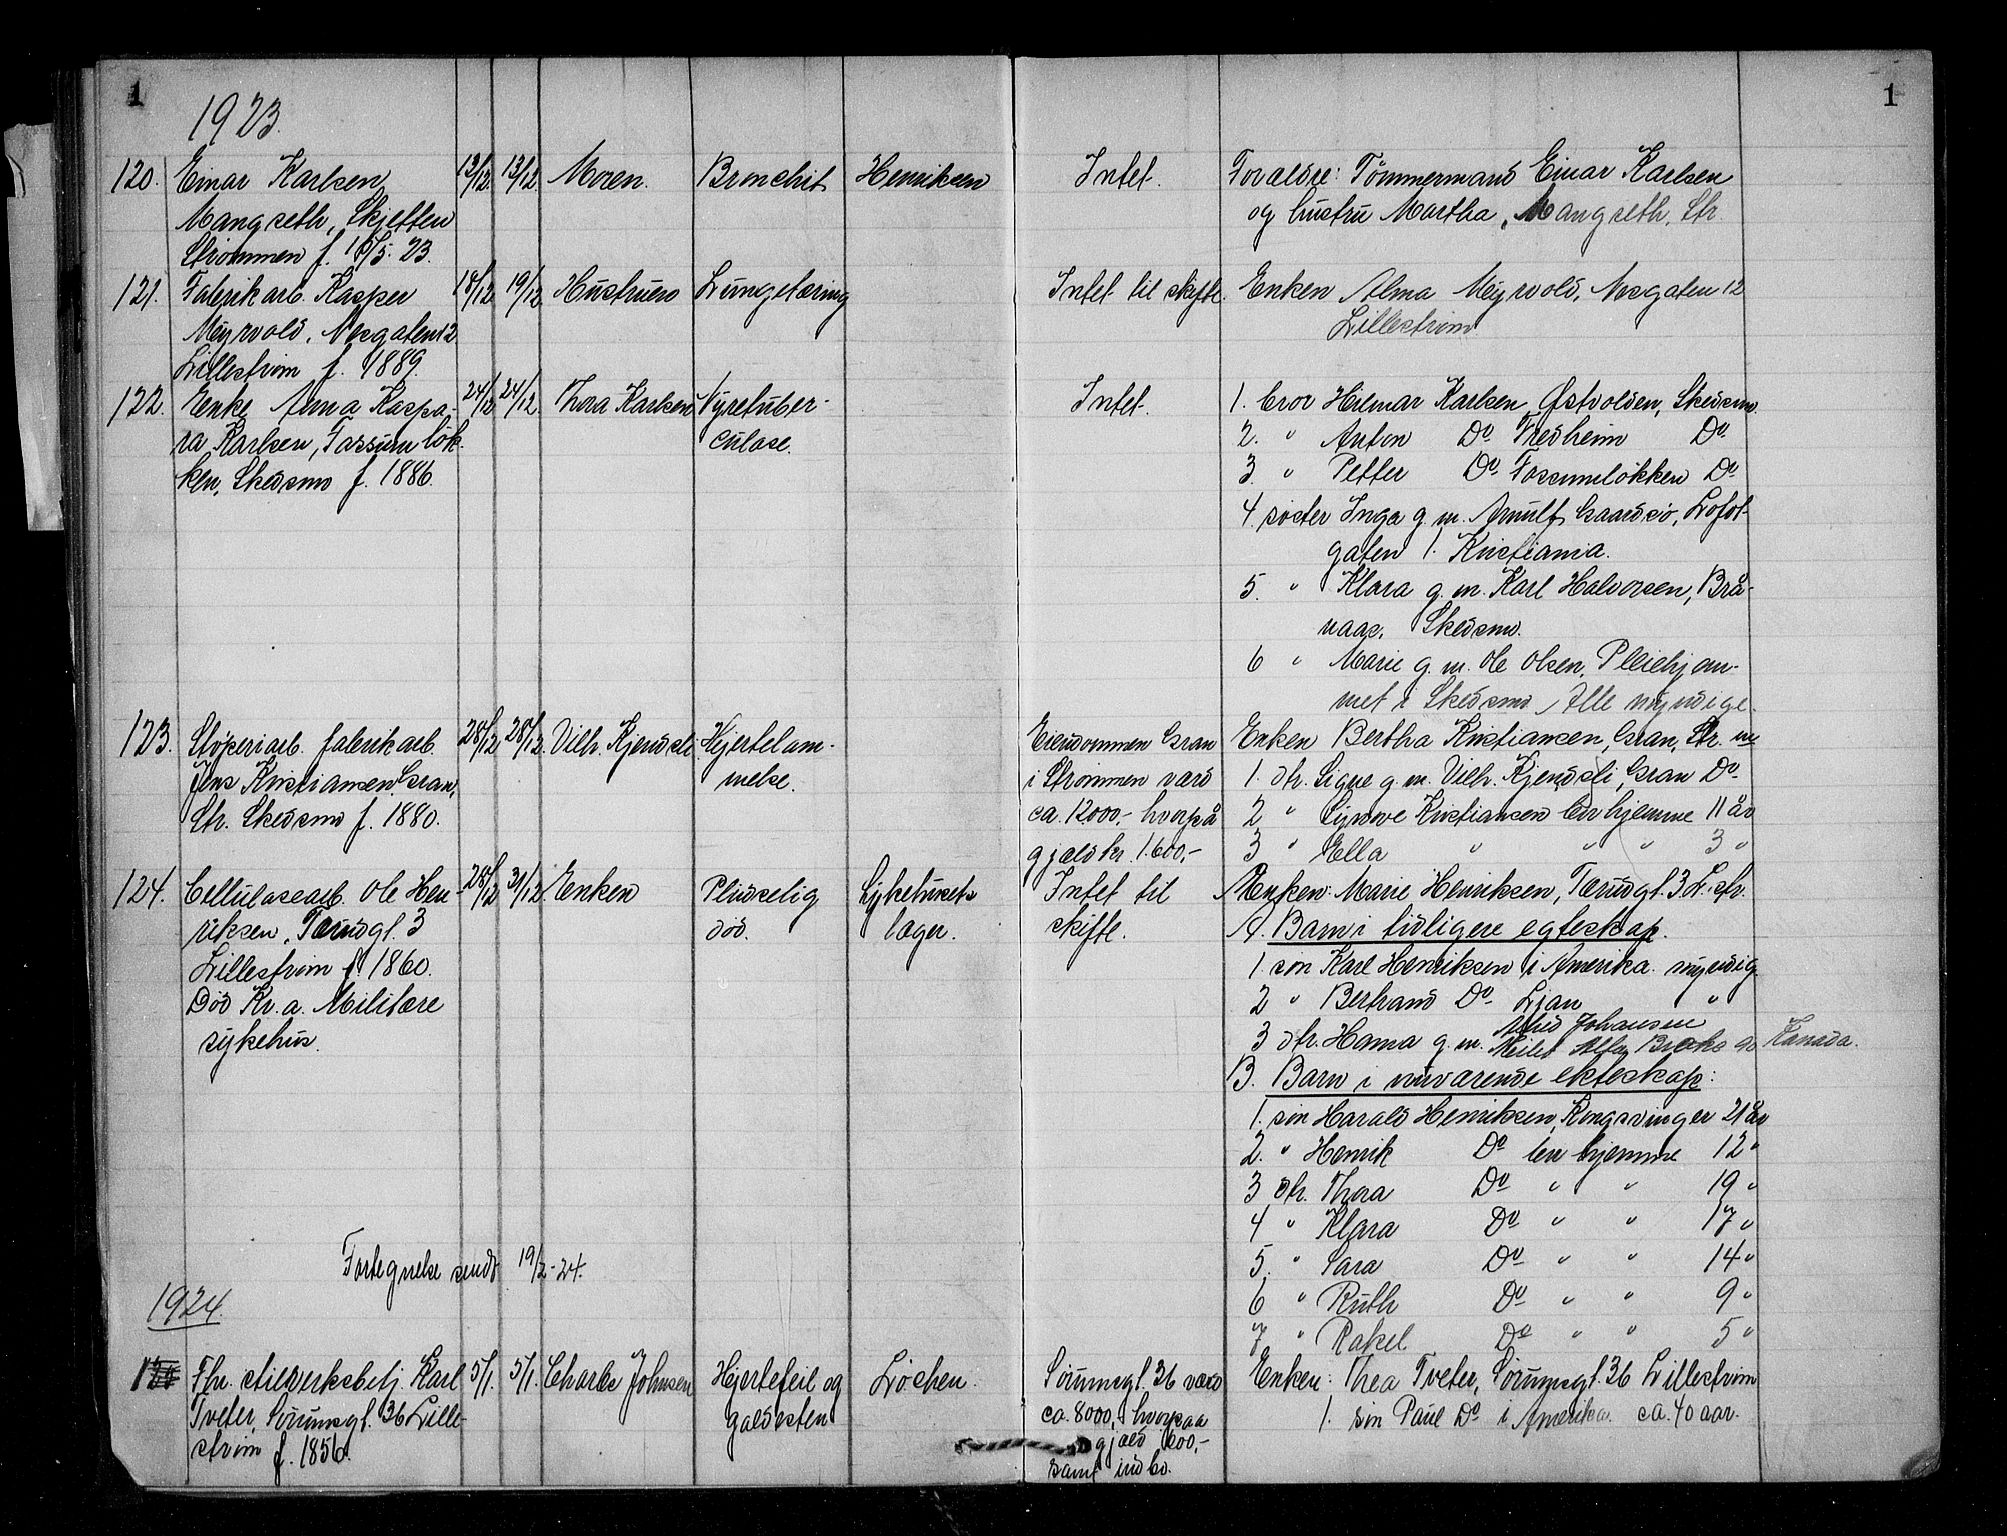 1
1
1923.
120. Einar Karlsen 13/12 13/12 Moren. Bronchit Henriksen Intet. Foraldre: Tømmermand Einar Karlsen
Mangseth, Skjetten og hustru Martha, Mangseth, Str.
Strømmen f. 23.
121. Fabrikarb. Kasper 18/12 19/12 Hustruen Lungetæring Intet til skifte. Enken Alma Myrvold, Nesgaten 12
Myrvold, Nesgaten 12 Lillestrøm
Lillestrøm f. 1889.
122. Enke Anna Kaspa- 24/12 24/12 Thora Karlsen Nyretuber- Intet 1. bror Hilmar Karlsen Østvolden, Skedsmo
ra Karlsen, Fossumløk- culose. 2. " Anton Do Fredheim Do
ken, Skedsmo f. 1886. 3. " Petter Do Fossumløkken Do
4 søster Inga g. m. Arnulf Gaardsø, Lofot-
gaten 1. Kristiania.
5. " Klara g. m. Karl Halvorsen, Brå-
naas, Skedsmo.
6 " Marie g. m. Ole Olsen, Pleiehjem-
met i Skedsmo. Alle myndige.
123. Støperiarb. fabrikarb. 28/12 28/12 Vilh. Kjendsli Hjertelam- Eiendommen Gran Enken Bertha Kristiansen, Gran, Str.
Jens Kristiansen, Gran, melse. i Strømmen værd 1. dtr. Signe g. m. Vilh. Kjendsli, Gran Do
Str. Skedsmo f. 1880. ca. 12000,- hvorpå 2 " Synnøve Kristiansen bor hjemme 11 år
gjæld kr. 1.600,- 3 " Ella " " " 3 "
124. Cellulosearb. Ole Hen- 28/12 31/12 Enken Pludselig Sykehusets Intet til Enken: Marie Henriksen, Tærudgt. 3 L.str.
riksen, Tærudgt. 3 død. læger. skifte. A. Barn i tidligere egteskap.
Lillestrøm f. 1860. 1. søn Karl Henriksen i Amerika. myndig.
Død Kr.a. Militære 2 " Bertrand Do Ljan "
sykehus. Johansen
3 dtr. Hanna g. m. Kanada.
B. Barn i nuværende ekteskap:
1. søn Harald Henriksen, Kongsvinger 21 år
2. " Henrik Do bor hjemme 12 "
3 dtr. Thora Do " " 19 "
4 " Klara Do " " 17 "
5. " Sara Do " " 14 "
6 " Ruth Do " " 9 "
7 " Rakel Do " " 5 "
Fortegnelse sendt 19/2-24.
1924.
1 Fhr. Karl 5/1. 5/1. Charles Johnsen Hjertefeil og Løchen. Sørumsgt. 36 værd Enken: Thea Tveter, Sørumsgt. 36 Lillestrøm
Tveter, Sørumsgt. 36 Lille- galdesten ca. 8000,- hvorpaa 1. søn Paul Do i Amerika. ca. 40 aar.
strøm f. 1856. gjæld 600,-
samt indbo.